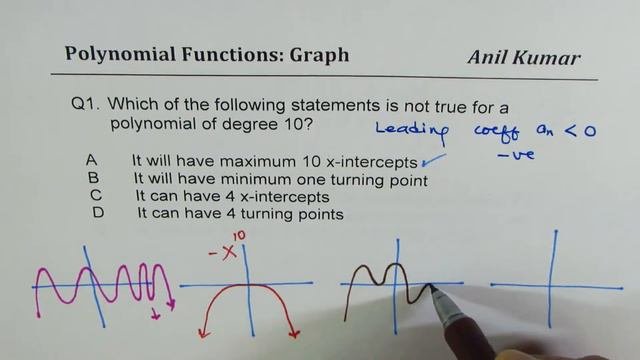 Polynomial Functions: Graph Anil Kumar
Q1. Which of the following statements is not true for a
polynomial of degree 10?
Leading coeff aₙ < 0
-ve
A It will have maximum 10 x-intercepts ✓
B It will have minimum one turning point
C It can have 4 x-intercepts
D It can have 4 turning points
-x¹⁰